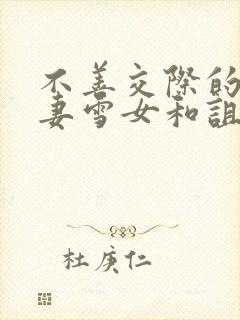 不善交际的
妻雪女和诅
杜庚仁